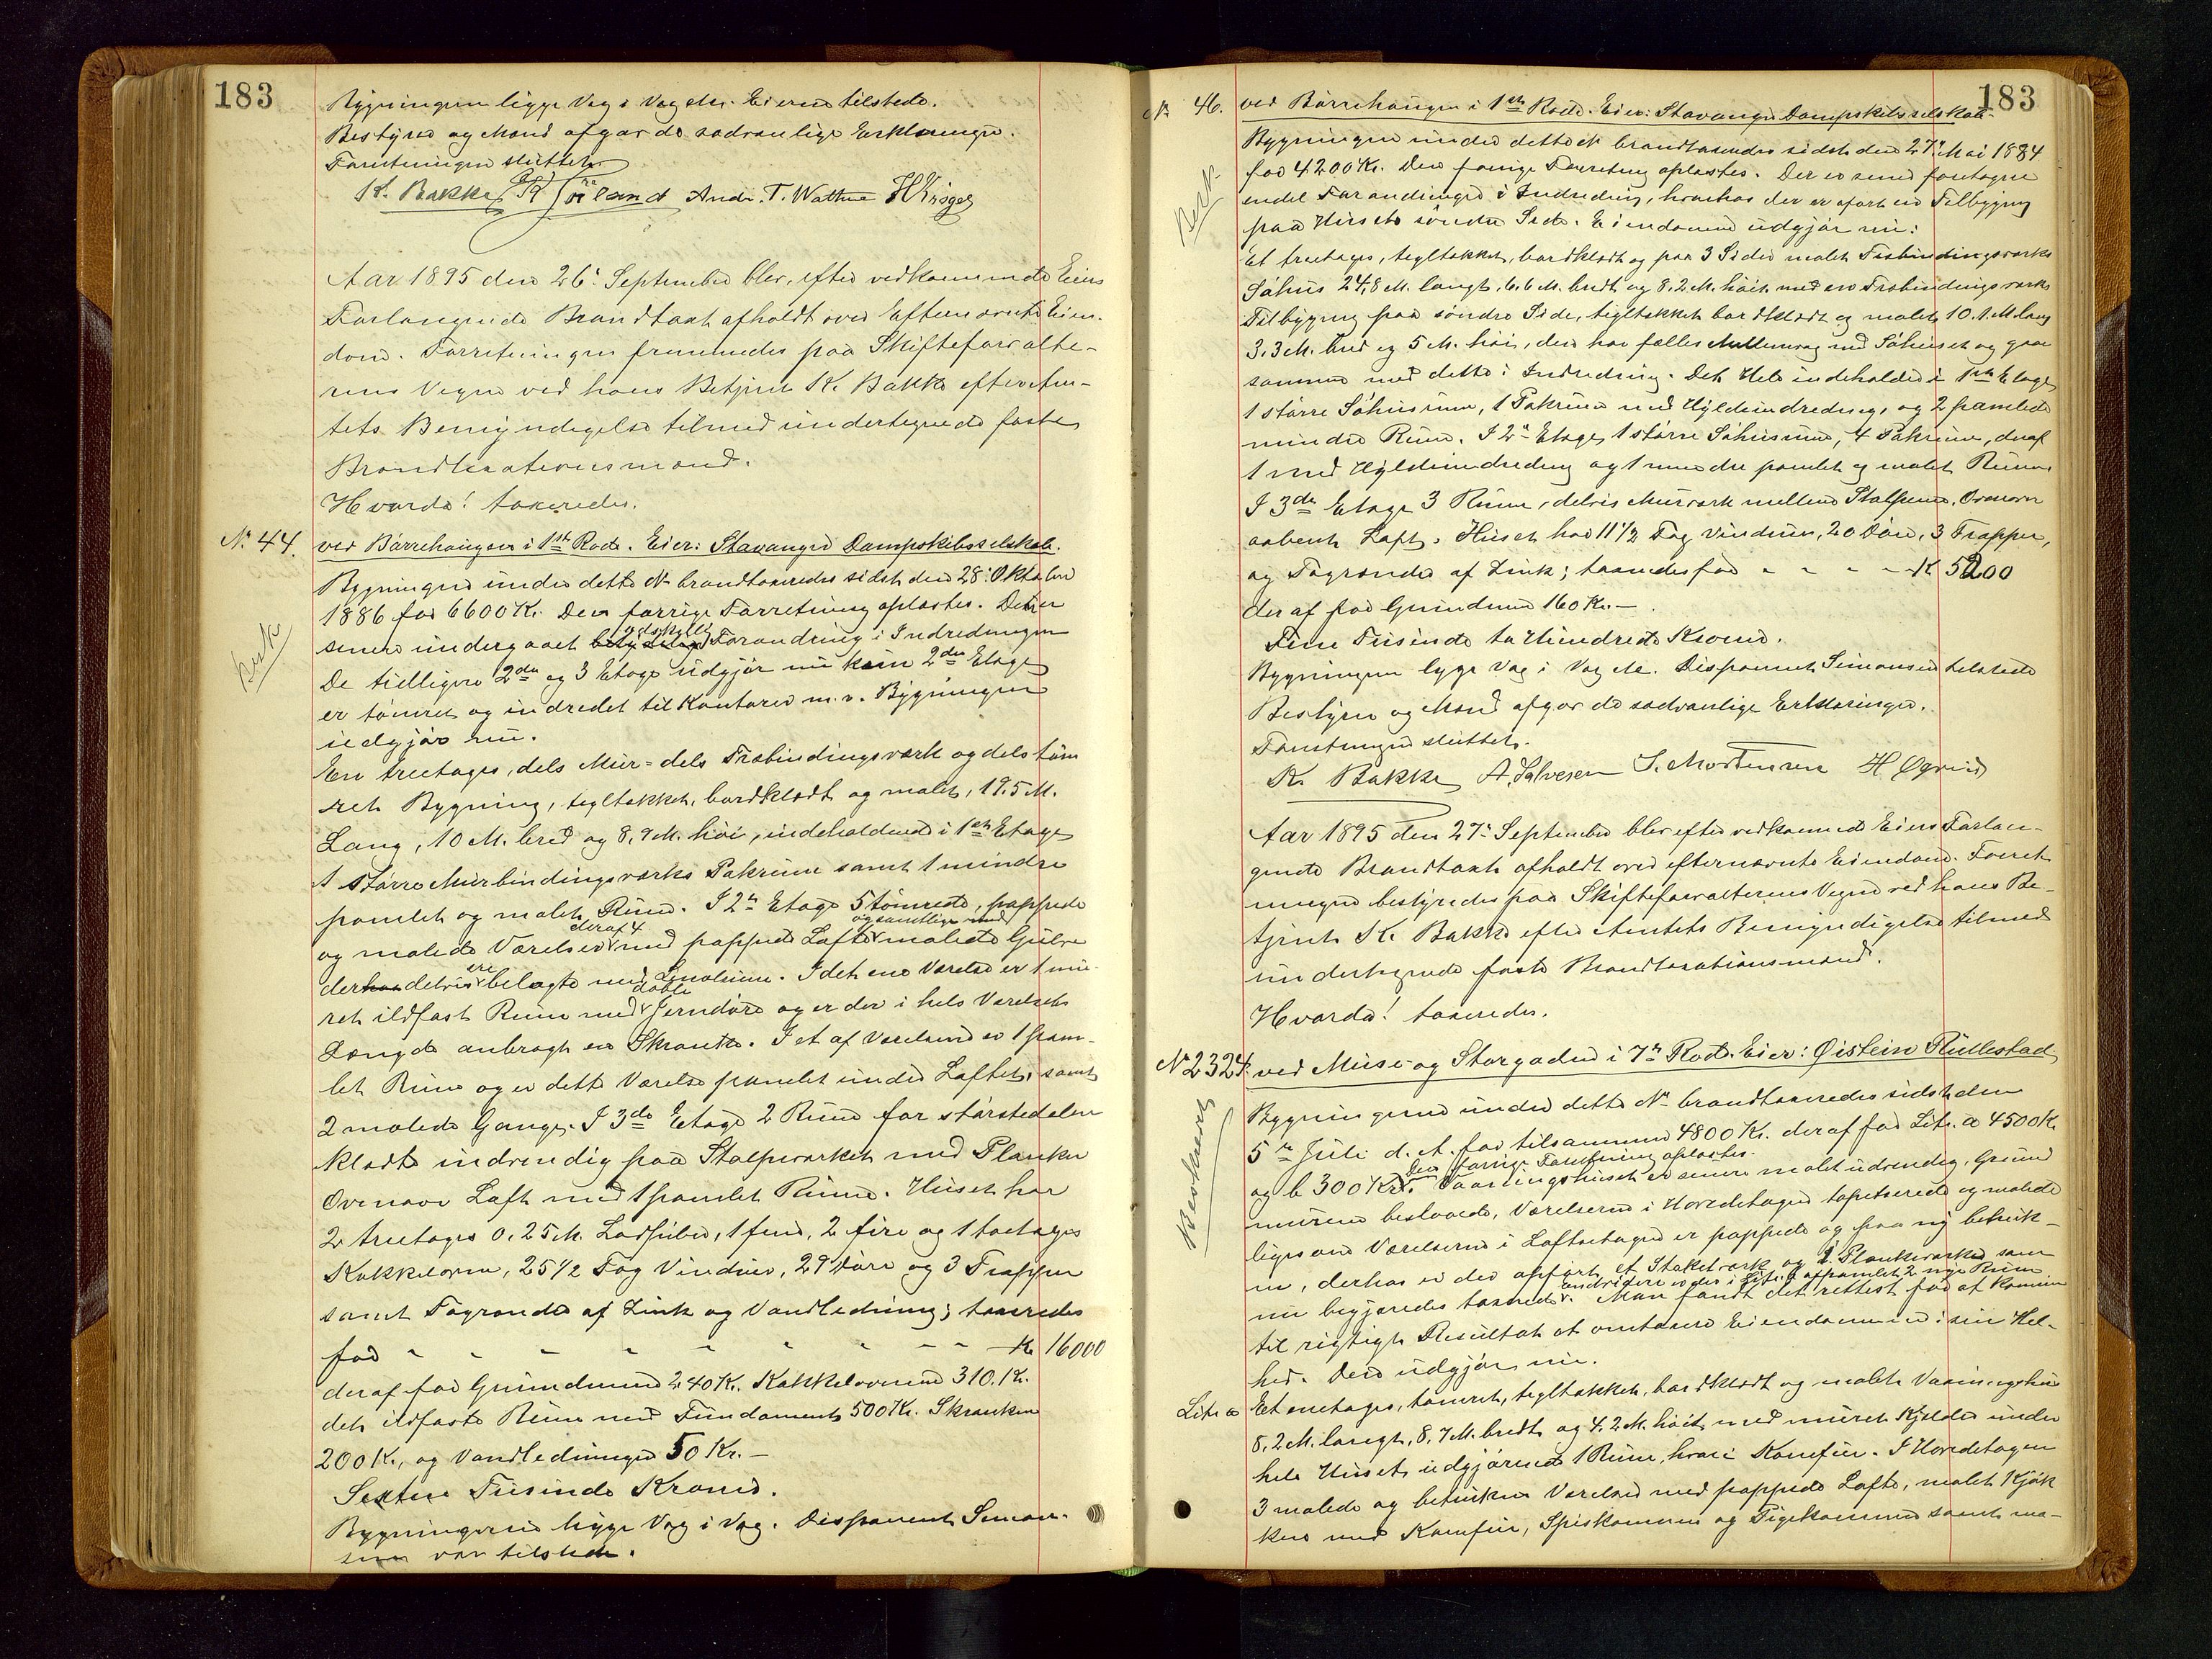 183
Bygningen ligge Væg i Væg etc. Eieren tilstede.
Bestyrer og Mænd afgav de sædvanlige Erklæringer.
Forretningen sluttet.
K. Bakke Andr. T. Wathne H Krøger
Aar 1895 den 26' September blev, efter vedkommende Eiers
Forlangende Brandtaxt afholdt over Efternævnte Eien-
dom. Forretningen fremmedes paa Skifteforvalte-
rens Vegne ved hans Betjent K. Bakke efter Am-
tets Bemyndigelse tilmed undertegnede faste
Brandtaxationsmænd.
Hvorda! taxeredes.
N. 44. ved Børrehaugen i 1ste Rode. Eier: Stavanger Dampskibsselskab.
Besk
Bygningen under dette N brandtaxeredes sidst den 28' Oktober
1886 for 6600 Kr. Den forrige Forretning oplæstes. Den er
senere undergaaet Forandring i Indredningen
De tidligere 2den og 3 Etage udgjør nu kun 2den Etage
er tømret og indredet til Kontorer m. v. Bygningen
udgjør nu.
En treetages, dels Mur- dels Træbindingsværk og dels töm
ret Bygning, tegltækket, bordklædt og malet, 19.5 M.
Lang, 10 M. bred og 8,9 M. höi, indeholdende i 1ste Etage
1 større Murbindingsværks Pakrum samt 1 mindre
panelet og malet Rum. I 2n Etage 5 tömrede, pappede
og malede Værelser deraf 4 med pappede Lofte og samtlige med malede Gulve
der delvis ere belagte med Linoleum. I det ene Værelse er 1 mu-
ret ildfast Rum med dobb Jerndøre og er der i hele Værelsets
Længde anbragt en Skranke. I et af Værelserne er 1 pane-
let Rum og er dette Værelse panelet under Loftet, samt
2 malede Gange. I 3de Etage 2 Rum for störstedelen
klædte indvendig paa Stolpeværket med Planker
Ovenover Loft med 1 panelet Rum. Huset har
2 treetages 0.25 M. Lodpiber, 1 fem, 2 fire og 1 toetages
Kakkelovne, 25 1/2 Fag Vinduer, 29 Döre og 3 Trapper
samt Tagrender af Zink og Vandledning; taxeredes
for - - - - - - - - Kr 16000
deraf for Grundmuren 240 Kr. Kakkelovnene 310. Kr.
det ildfaste Rum med Fundament 500 Kr. Skranken
200 Kr, og Vandledningen 50 Kr. —
Sexten Tusinde Kroner.
Bygningerne ligge Væg i Væg. Disponent Simon-
sen var tilstede.
183
N 46. ved Børrehaugen i 1ste Rode. Eier: Stavanger Dampskibsselskab.
Besk
Bygningen under dette N brandtaxeredes sidst den 27' Mai 1884
for 4200 Kr. Den forrige Forretning oplæstes. Der er senere foretagen
endel Forandringer i Indredning, hvorhos der er opført en Tilbygning
paa Husets söndre Side. Eiendommen udgjör nu:
Et treetages, tegltækket, bordklædt og paa 3 Sider malet Træbindingsværks
Söhus 24,8 M. langt, 6.6 M. bredt og 8.2 M. höit med en Træbindingsværks
Tilbygning paa söndre Side, tegltækket bordklædt og malet, 10.1 M. lang
3.3 M. bred og 5 M. höi, der har fælles Mellemvæg med Söhuset og gaar
sammen med dette i Indredning. Det Hele indeholder i 1ste Etage
1 större Söhusrum, 1 Pakrum med Hyldeindredning, og 2 panelede
mindre Rum. I 2n Etage, 1 större Söhusrum, 4 Pakrum, deraf
1 med Hyldeindredning og 1 mindre panelet og malet Rum.
I 3de Etage 3 Rum, delvis Murværk mellem Stolperne. Ovenover
aabent Loft. Huset har 11 1/2 Fag Vinduer, 20 Döre, 3 Trapper,
og Tagrender af Zink; taxeredes for - - - - Kr 5200
deraf for Grundmur 160 Kr. —
Fem Tusinde to Hundrede Kroner.
Bygningen ligge Væg i Væg etc. Disponent Simonsen tilstede
Bestyrer og Mænd afgav de sædvanlige Erklæringer.
Forretningen sluttet.
K. Bakke A. Salvesen S. Mortensen H. Øgreid
Aar 1895 den 27' September blev efter vedkommende Eiers Forlan-
gende Brandtaxt afholdt over efternævnte Eiendom. Forret-
ningen bestyredes paa Skifteforvalterens Vegne ved hans Be-
tjent K. Bakke efter Amtets Bemyndigelse tilmed
undertegnede faste Brandtaxationsmænd.
Hvorda! taxeredes.
N 2324. ved Muse- og Storgaden i 7n Rode. Eier: Øistein Rullestad
Beskrevet
Bygningerne under dette N brandtaxeredes sidst den
5te Juli d. A. for tilsammen 4800 Kr. deraf for Litr. a 4500 Kr
og b 300 Kr. Den forrige Forretning oplæstes. Vaaningshuset er senere malet udvendig, Grund
muren beslaaede, Værelserne i Hovedetagen tapetserede og malede
ligesom Værelserne i Loftsetagen er pappede og paa ny betrük-
ne, derhos er der opfört et Staketværk og 1 Plankeværk, som
nu begjæredes taxeret, endvidere er der i Litr. b afpanelet 2 nye Rum. Man fandt det rettest for at komme
til rigtigt Resultat at omtaxere Eiendommen i sin Hel-
hed. Den udgjör nu.
Litr a Et enetages, tömret, tegltækket, bordklædt og malet Vaaningshus
8.2 M. langt, 8.7 M. bredt og 4.2 M. höit med muret Kjelder under
hele Huset udgjörende 1 Rum, hvori Komfur. I Hovedetagen
3 malede og betrukne Værelser med pappede Lofte, malet Kjök
ken med Komfur, Spiskammer og Pigekammer samt ma-